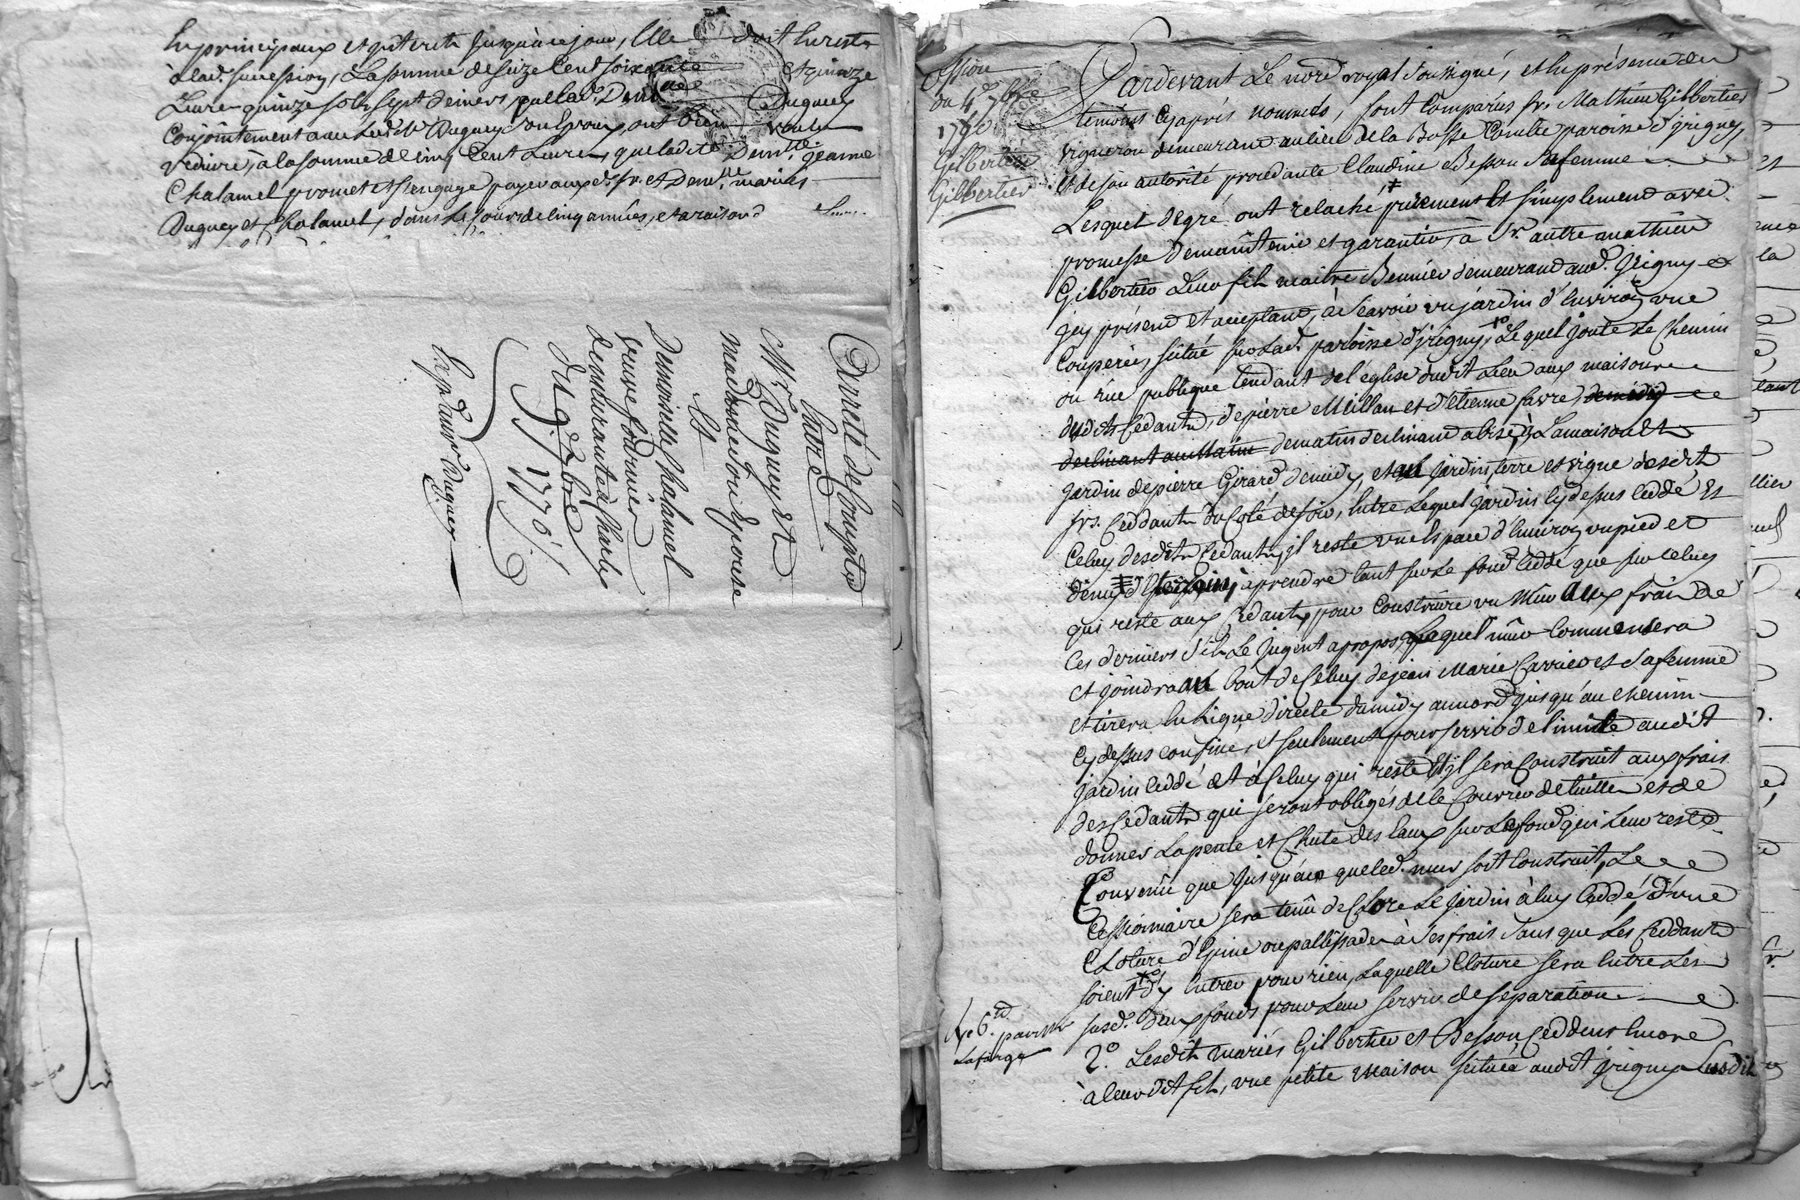 En principaux et intérêts jusqu'à ce jour, Elle doit En reste
à lad. succession, La somme de seize Cent soixante et quinze
Livre quinze sols sept deniers que lad. Dem.lle Duguey
Conjointement avec led. Sr Duguey son Epoux, ont bien voulu
réduire, à la somme de cinq Cent Livres, que ladite Demlle Jeanne
Chalamel promet et s'engage payer auxd. sr. et Demlle mariés
Duguey et Chalamel, dans Le cours de cinq années, et a raison d
Arrêté de Compte
Entre
Mr Duguey Et
Madame son Epouse
Et
Demoiselle Chalamel
veuve fournier
demeurante à Charly
du 4 7bre
1776
Exp. pour Duguey
Cession
du 4e 7bre
Gilbertier
Gilbertier
Pardevant Le no.re royal soussigné, et En présence des
témoins Cy après nommés, sont Comparus sr. Mathieu Gilbertier
vigneron demeurant au lieu de la Basse Combe paroisse d'irigny,
Et de son autorité procédante Claudine Besson sa femme
Lesquels de gré ont relaché purement Et simplement avec
promesse de maintenir et garantir, à Sr. autre mathieu
Gilbertier Leur fils maitre Bennier demeurant aud. irigny
icy présent et acceptant, à Scavoir un jardin d'Environ une
Couperée, scitué sur Lad. paroisse d'irigny, 1o Lequel joute Le Chemin
ou rüe publique tendant de l'église dudit Lieu aux maisons
desdits Cedants, de pierre Millan et d'étienne favre,
de matin declinant a bise, La maison Et
jardin de pierre Girard de midy, et jardin, terre et vigne desdits
srs. Ceddants du Coté de soir, Entre Lequel jardin cy dessus Ceddé Et
Celuy desdits Cedants, il reste un Espace d'Environ un pied et
demy à prendre tant sur Le fond Ceddé que sur celuy
qui reste aux Cedants, pour Construire un Mur aux frais de
Ces derniers s'ils Le jugent apropos, Lequel mur Commencera
et joindra au bout de Celuy de jean Marie Carrier et sa femme
et tirera En Ligne directe du midy au nord jusqu'au chemin
Cy dessus confiné, et seulement pour servir de limite audit
jardin Ceddé et à Celuy qui reste Et il sera Construit aux frais
des Cedants qui seront obligés de le Couvrir de tuilles et de
donner La pente et Chute des Eaux sur Le fond qui Leur reste
Convenû que jusqu'à ce que led. mur soit Construit, Le
Cessionnaire sera tenû de Clore Le jardin à luy Ceddé d'une
Cloture d'Epine ou pallissade à ses frais sans que Les Ceddants
soient d'y Entrer pour rien, Laquelle Cloture sera Entre Les
susd. deux fonds pour Leur servir de separation
2o. Lesdits mariés Gilbertier et Besson Ceddent Encore
à leur dit fils, une petite maison scituée audit irigny Lesdits